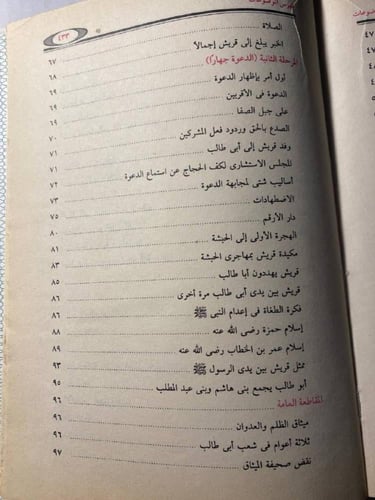 فهرس الموضوعات
٤٣٣
الصلاة
الخبر يبلغ إلى قريش إجمالاً ٦٧
المرحلة الثانية (الدعوة جهارا)
أول أمر بإظهار الدعوة ٦٨
الدعوة فى الأقربين ٦٩
على جبل الصفا ٦٩
الصدع بالحق وردود فعل المشركين ٧١
وفد قريش إلى أبى طالب ٧١
المجلس الاستشارى لكف الحجاج عن استماع الدعوة ٧١
أساليب شتى لمجابهة الدعوة ٧٢
الاضطهادات ٧٥
دار الأرقم ٨٠
الهجرة الأولى إلى الحبشة ٨١
مكيدة قريش بمهاجرى الحبشة ٨٣
قريش يهددون أبا طالب ٨٥
قريش بين يدى أبى طالب مرة أخرى ٨٦
فكرة الطغاة فى إعدام النبى ﷺ ٨٦
إسلام حمزة رضى الله عنه ٨٨
إسلام عمر بن الخطاب رضى الله عنه ٨٩
ممثل قريش بين يدى الرسول ﷺ ٩٣
أبو طالب يجمع بنى هاشم وبنى عبد المطلب ٩٥
المقاطعة العامة ٩٦
ميثاق الظلم والعدوان ٩٦
ثلاثة أعوام فى شعب أبى طالب ٩٦
نقض صحيفة الميثاق ٩٧